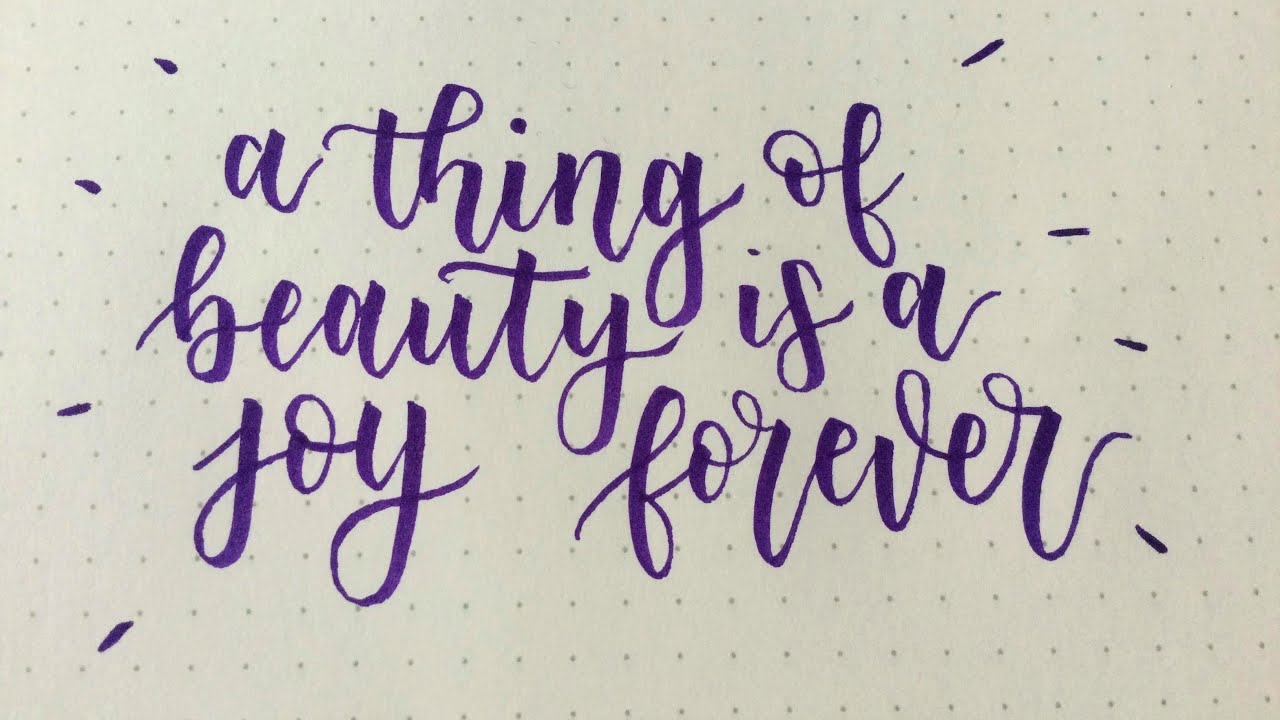 a thing of
beauty is a
joy forever